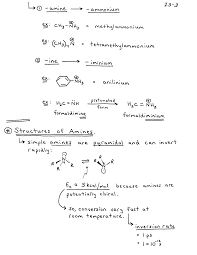 23-2
① -amine → -ammonium
eg: CH₃-NH₃ = methylammonium
eg: (CH₃)₄N = tetramethylammonium
② -ine → -iminium
eg: NH₃ = anilinium
eg: H₂C=NH protonated form H₂C=NH₂
formaldimine formaldiminium
Structures of Amines
simple amines are pyramidal and can invert
rapidly:
Eₐ ≈ 5 kcal/mol because amines are
potentially chiral.
So, conversion very fast at
room temperature.
inversion rate
= 1 ps
= 1×10⁻¹²